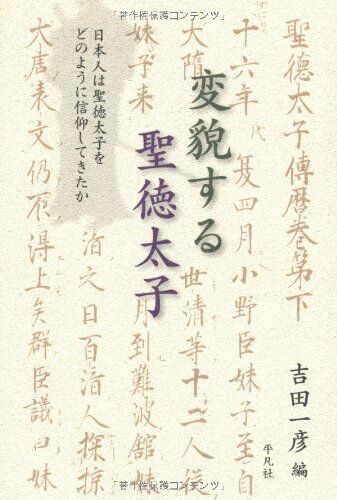 「著作権保護コンテンツ」
聖徳太子傳暦巻第下
十六年
代
夏四月小野臣妹子至自
大隋
世清等十二人従
妹子来
月到難波舘妹
日本人は聖徳太子を
どのように信仰してきたか
変貌する
聖徳太子
大唐表文仍不得上矣群臣議曰妹
沼之日百済人探掠
吉田一彦 編
平凡社
「著作権保護コンテンツ」